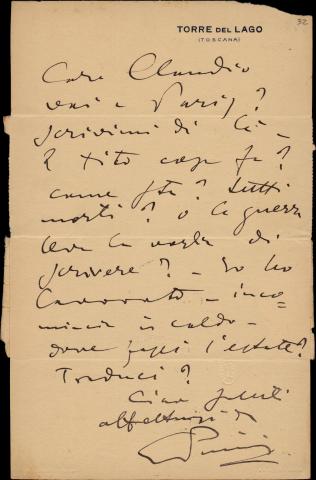 32
TORRE DEL LAGO
(TOSCANA)
Caro Claudio
vai a Parigi?
scrivimi di là –
E Tito cosa fa?
come sta? tutti
morti? o la guerra
leva la voglia di
scrivere? – Io ho
lavorato – inco=
mincia il caldo –
dove passi l'estate?
Traduci?
Ciao saluti
affettuosi
Puccini